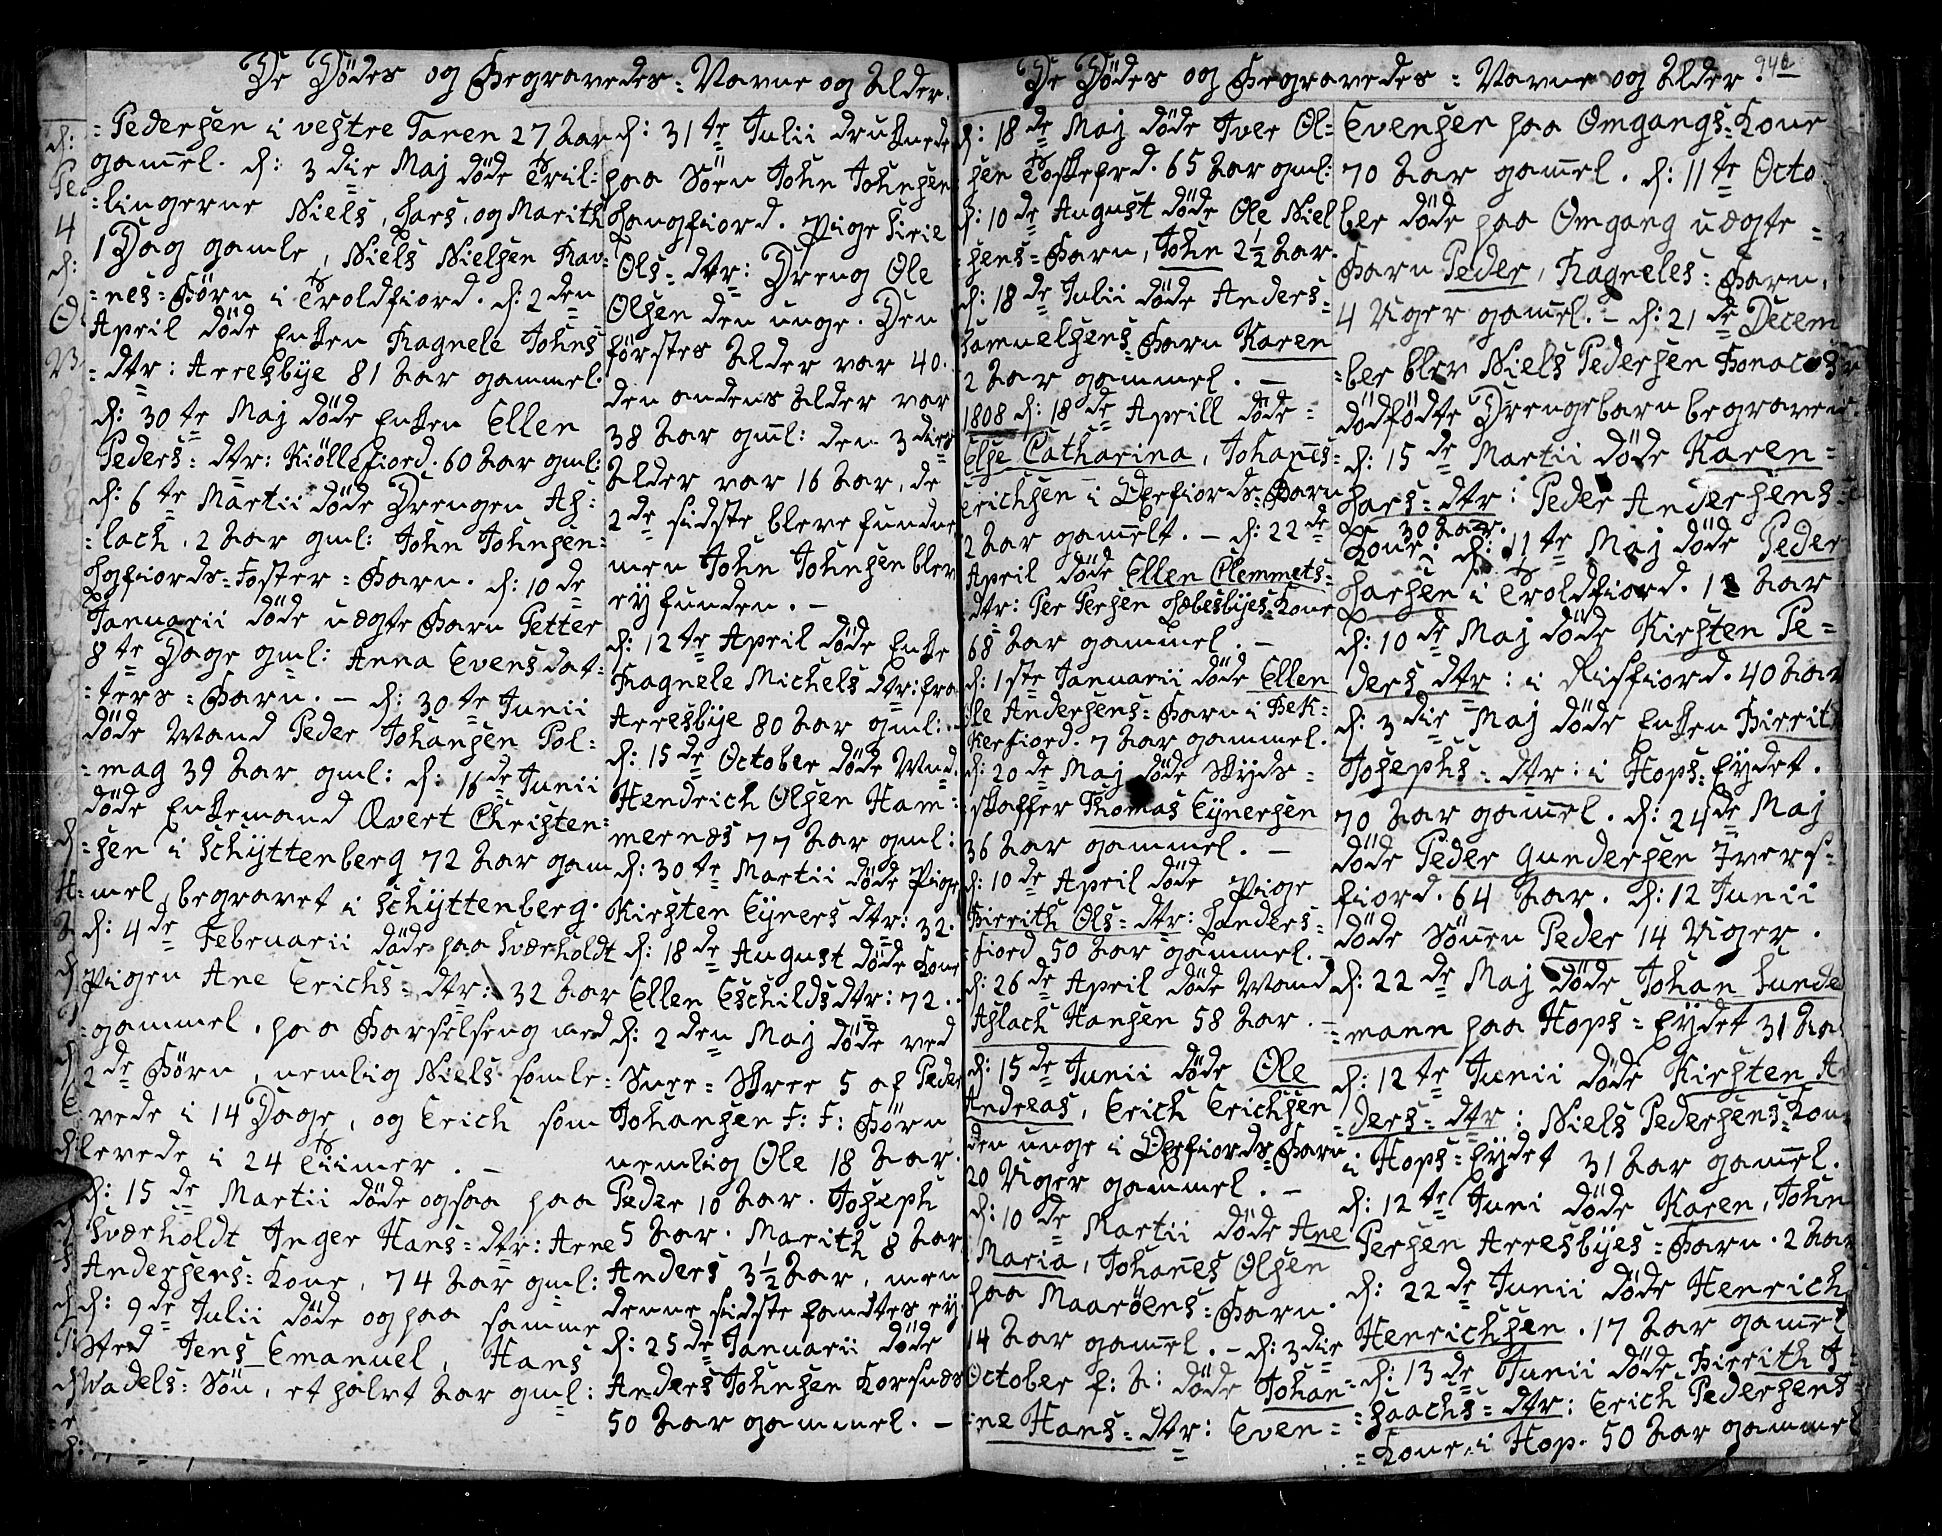 De Dödes og Begravedes = Navne og Alder.
= Pedersen i vestre Tanen 27 Aar
gam̅el. d: 3 die Maj döde Tril:
= lingerne Niels, Lars, og Marith
1 Dag gamle, Niels Nielsen Rav-
= nes = Börn i Troldfiord. d: 2 den
April döde Enken Ragnele Johns
= dtr: Arresbÿe 81 Aar gammel.
d: 30 te Maj döde Enken Ellen
Peders = dtr: Kiöllefiord. 60 Aar gml:
d: 6 te Martii döde Drengen As:
= lach, 2 Aar gml: John Johnsen =
Lgfiords = Foster = Barn. d: 10 de
Januarii döde uægte Barn Petter
8 te Dage gml: Anna Evens dat:
: ters = Barn. – d: 30 te Junii
döde Mand Peder Johansen Pol =
= mag 39 Aar gml: d: 16 de Junii
döde Enkemand Evert Christen =
= sen i Schÿttenberg 72 Aar gam
= mel, begravet i Schÿttenberg.
d: 4 de Februarii döde paa Sværholdt
Pigen Ane Erichs = dtr: 32 Aar
= gammel. paa Barselseng med
2 de Börn, nemlig Niels som le =
vede i 14 Dage, og Erich som
levede i 24 Tiimer. –
d: 15 de Martii döde ogsaa paa
Sværholdt Inger Hans = dtr: Arne
Andersens = Kone, 74 Aar gml:
d: 9 de Julii döde og paa samme
Sted Jens Emanuel, Hans
Wadels = Sön, et halvt Aar gml:
d: 31 te Julii druknede
paa Söen John Johnsen
Langfiord. Pige Siril
Ols = dtr: Dreng Ole
Olsen den unge. Den
förstes Alder var 40.
den andens Alder var
38 Aar gml: den 3 dies
Alder var 16 Aar, de
2 de sidste bleve fundne
men John Johnsen blev
eÿ funden. –
d: 12 te April döde Enke
Ragnele Michels dtr: fra
Arresbÿe 80 Aar gml: –
d: 15 de October döde Mnd.
Hendrich Olsen Ham =
mernæs 77 Aar gml:
d: 30 te Martii döde Pige
Kirsten Eÿners dtr: 32.
d: 18 de August döde Kone
Ellen Eschilds dtr: 72.
d: 2 den Maj döde ved
Snee = Skree 5 af Peder
Johansen F: F: Börn
nemlig Ole 18 Aar.
Peder 10 Aar. Joseph
5 Aar. Marith 8 Aar
Anders 3 ½ Aar, men
denne sidste fandtes eÿ.
d: 25 de Januarii döde
Anders Johnsen Korsnæs
50 Aar gammel. –
De Dödes og Begravedes = Navne og Alder.
d: 18 de Maj döde Iver Ol =
sen Toskefrd. 65 Aar gml:
d: 10 de August döde Ole Niel
sens = Barn, John 2 ½ Aar.
d: 18 de Julii döde Anders =
Samuelsens = Barn Karen
2 Aar gammel. –
1808 d: 18 de Aprill döde =
Else Catharina, Johan̅es =
Erichsen i Eefiords = Barn
2 Aar gam̅elt. – d: 22 de
April döde Ellen Clemmets =
dtr: Per Persen Læbesbÿes = Kone
68 Aar gammel. –
d: 1 ste Januarii döde Ellen
Ole Andersens = Barn i Bek =
kerfiord. 7 Aar gammel.
d: 20 de Maj döde Skÿds =
skaffer Thomas Eÿnersen
36 Aar gammel. –
d: 10 de April döde Pige
Birrith Ols = dtr: Landers =
fiord 50 Aar gammel. –
d: 26 de April döde Mand
Aslach Hansen 58 Aar. –
d: 15 de Junii döde Ole
Andreas, Erich Erichsen
den unge i Eefiords = Barn
20 Uger gammel. –
d: 10 de Martii döde Ane
Maria, Johan̅es Olsen
paa Maaröens = Barn.
14 Aar gam̅el. – d: 3 die
October f: A: döde Johan =
= ne Hans = dtr: Even =
940
Evensen paa Omgangs = Kone
70 Aar gam̅el. d: 11 te Octo
ber döde paa Omgang uægte =
Barn Peder, Ragneles = Barn,
4 Uger gam̅el. – d: 21 de Decem
= ber blev Niels Pedersen
dödfödte Drengebarn begraven.
d: 15 de Martii döde Karen =
Lars = dtr: Peder Andersens =
Kone. 30 Aar. d: 11 te Maj döde Peder
Larsen i Troldfiord. 12 Aar
d: 10 de Maj döde Kirsten Pe =
ders dtr: i Risfiord. 40 Aar
d: 3 die Maj döde Enken Birrith
Josephs = dtr: i Hops = Eÿdet.
70 Aar gam̅el. d: 24 de Maj
döde Peder Gundersen Ivers =
fiord. 64 Aar. d: 12 Junii
döde Sön̅en Peder 14 Uger.
d: 22 de Maj döde Johan Sunde
= mann paa Hops = Eÿdet 31 Aar
d: 12 te Junii döde Kirsten An
= ders = dtr: Niels Pedersens = Kone
i Hops = Eÿdet 31 Aar gam̅el.
d: 12 te Juni döde Karen, John
Persen Arresbÿes = Barn. 2 Aar
d: 22 de Junii döde Henrich
Henrichsen. 17 Aar gam̅el
d: 13 de Junii döde Birrith I =
= saachs = dtr: Erich Pedersens
= Kone, i Hop. 50 Aar gammel